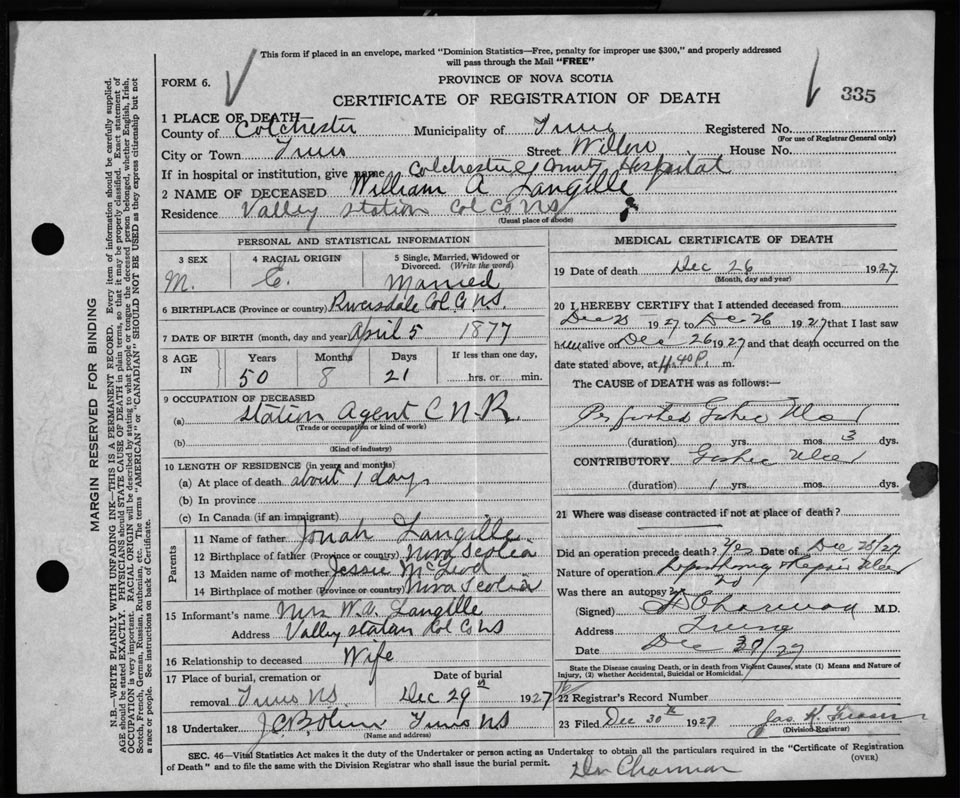 This form if placed in an envelope, marked "Dominion Statistics—Free, penalty for improper use $300," and properly addressed
will pass through the Mail "FREE"
FORM 6.
PROVINCE OF NOVA SCOTIA
CERTIFICATE OF REGISTRATION OF DEATH
335
1 PLACE OF DEATH
County of Colchester Municipality of Truro Registered No.
(For use of Registrar General only)
City or Town Truro Street Willow House No.
If in hospital or institution, give name Colchester County Hospital
2 NAME OF DECEASED William A Langille
Residence Valley Station Col Co NS
(Usual place of abode)
PERSONAL AND STATISTICAL INFORMATION
3 SEX 4 RACIAL ORIGIN 5 Single, Married, Widowed or
Divorced. (Write the word)
M. E. Married
6 BIRTHPLACE (Province or country) Riversdale Col Co NS.
7 DATE OF BIRTH (month, day and year) April 5 1877
8 AGE IN Years Months Days If less than one day,
50 8 21 hrs. or min.
9 OCCUPATION OF DECEASED
(a) Station Agent C N R.
(Trade or occupation or kind of work)
(b)
(Kind of industry)
10 LENGTH OF RESIDENCE (in years and months)
(a) At place of death about 1 day
(b) In province
(c) In Canada (if an immigrant)
Parents
11 Name of father Jonah Langille
12 Birthplace of father (Province or country) Nova Scotia
13 Maiden name of mother Jessie McLeod
14 Birthplace of mother (Province or country) Nova Scotia
15 Informant's name Mrs W.A. Langille
Address Valley Station Col Co NS
16 Relationship to deceased Wife
17 Place of burial, cremation or Date of burial
removal Truro NS Dec 29th 1927
18 Undertaker Truro NS
(Name and address)
MEDICAL CERTIFICATE OF DEATH
19 Date of death Dec 26 1927
(Month, day and year)
20 I HEREBY CERTIFY that I attended deceased from
Dec 25 1927 to Dec 26 1927 that I last saw
him alive on Dec 26 1927 and that death occurred on the
date stated above, at 11.40 P. m.
The CAUSE of DEATH was as follows:—
Perforated Gastric Ulcer
(duration) yrs. mos. 3 dys.
CONTRIBUTORY Gastric Ulcer
(duration) 1 yrs. mos. dys.
21 Where was disease contracted if not at place of death?
Did an operation precede death? Yes Date of Dec 25/27
Nature of operation Repair Ulcer
Was there an autopsy? no
(Signed) M.D.
Address Truro
Date Dec 30/27
State the Disease causing Death, or in death from Violent Causes, state (1) Means and Nature of
Injury, (2) whether Accidental, Suicidal or Homicidal.
22 Registrar's Record Number
23 Filed Dec 30th 1927 Jas K
(Division Registrar)
SEC. 46—Vital Statistics Act makes it the duty of the Undertaker or person acting as Undertaker to obtain all the particulars required in the "Certificate of Registration
of Death" and to file the same with the Division Registrar who shall issue the burial permit.
(OVER)
MARGIN RESERVED FOR BINDING
N.B.—WRITE PLAINLY WITH UNFADING INK—THIS IS A PERMANENT RECORD. Every item of information should be carefully supplied.
AGE should be stated EXACTLY. PHYSICIANS should STATE CAUSE OF DEATH in plain terms, so that it may be properly classified. Exact statement of
OCCUPATION is very important. RACIAL ORIGIN will be described by stating to what people or tongue the deceased person belonged, whether English, Irish,
Scotch, French, German, Russian, Ruthenian, etc. The terms "AMERICAN" or "CANADIAN" SHOULD NOT BE USED as they express citizenship but not
a race or people. See instructions on back of Certificate.